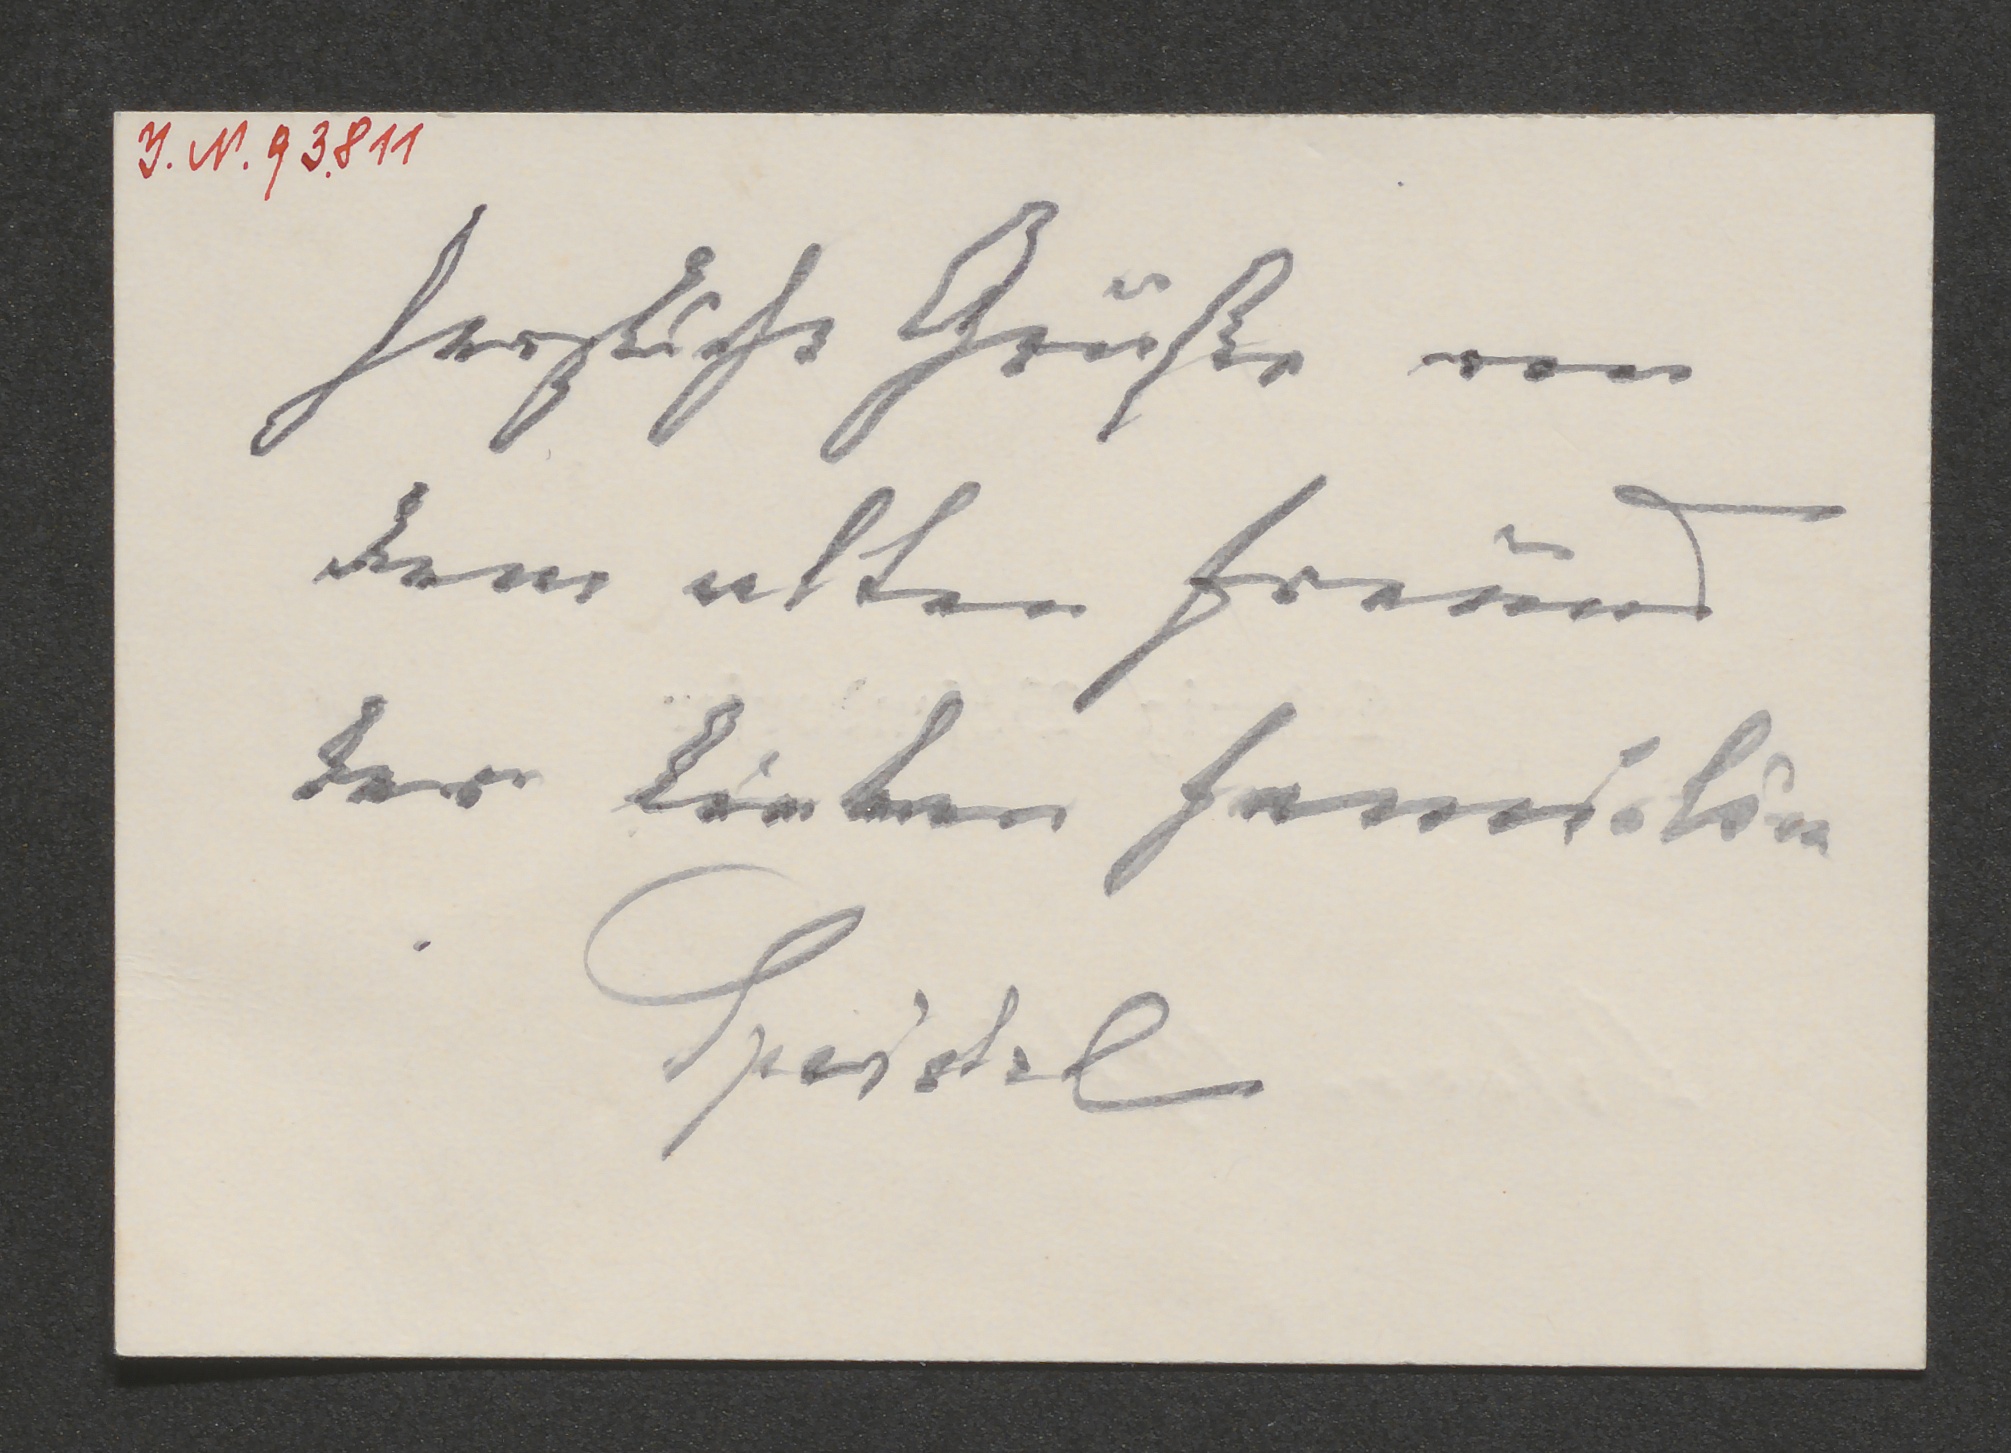 I.N. 93.811
Herzliche Grüße von
dem alten Freund
der lieben Familie
Speidel